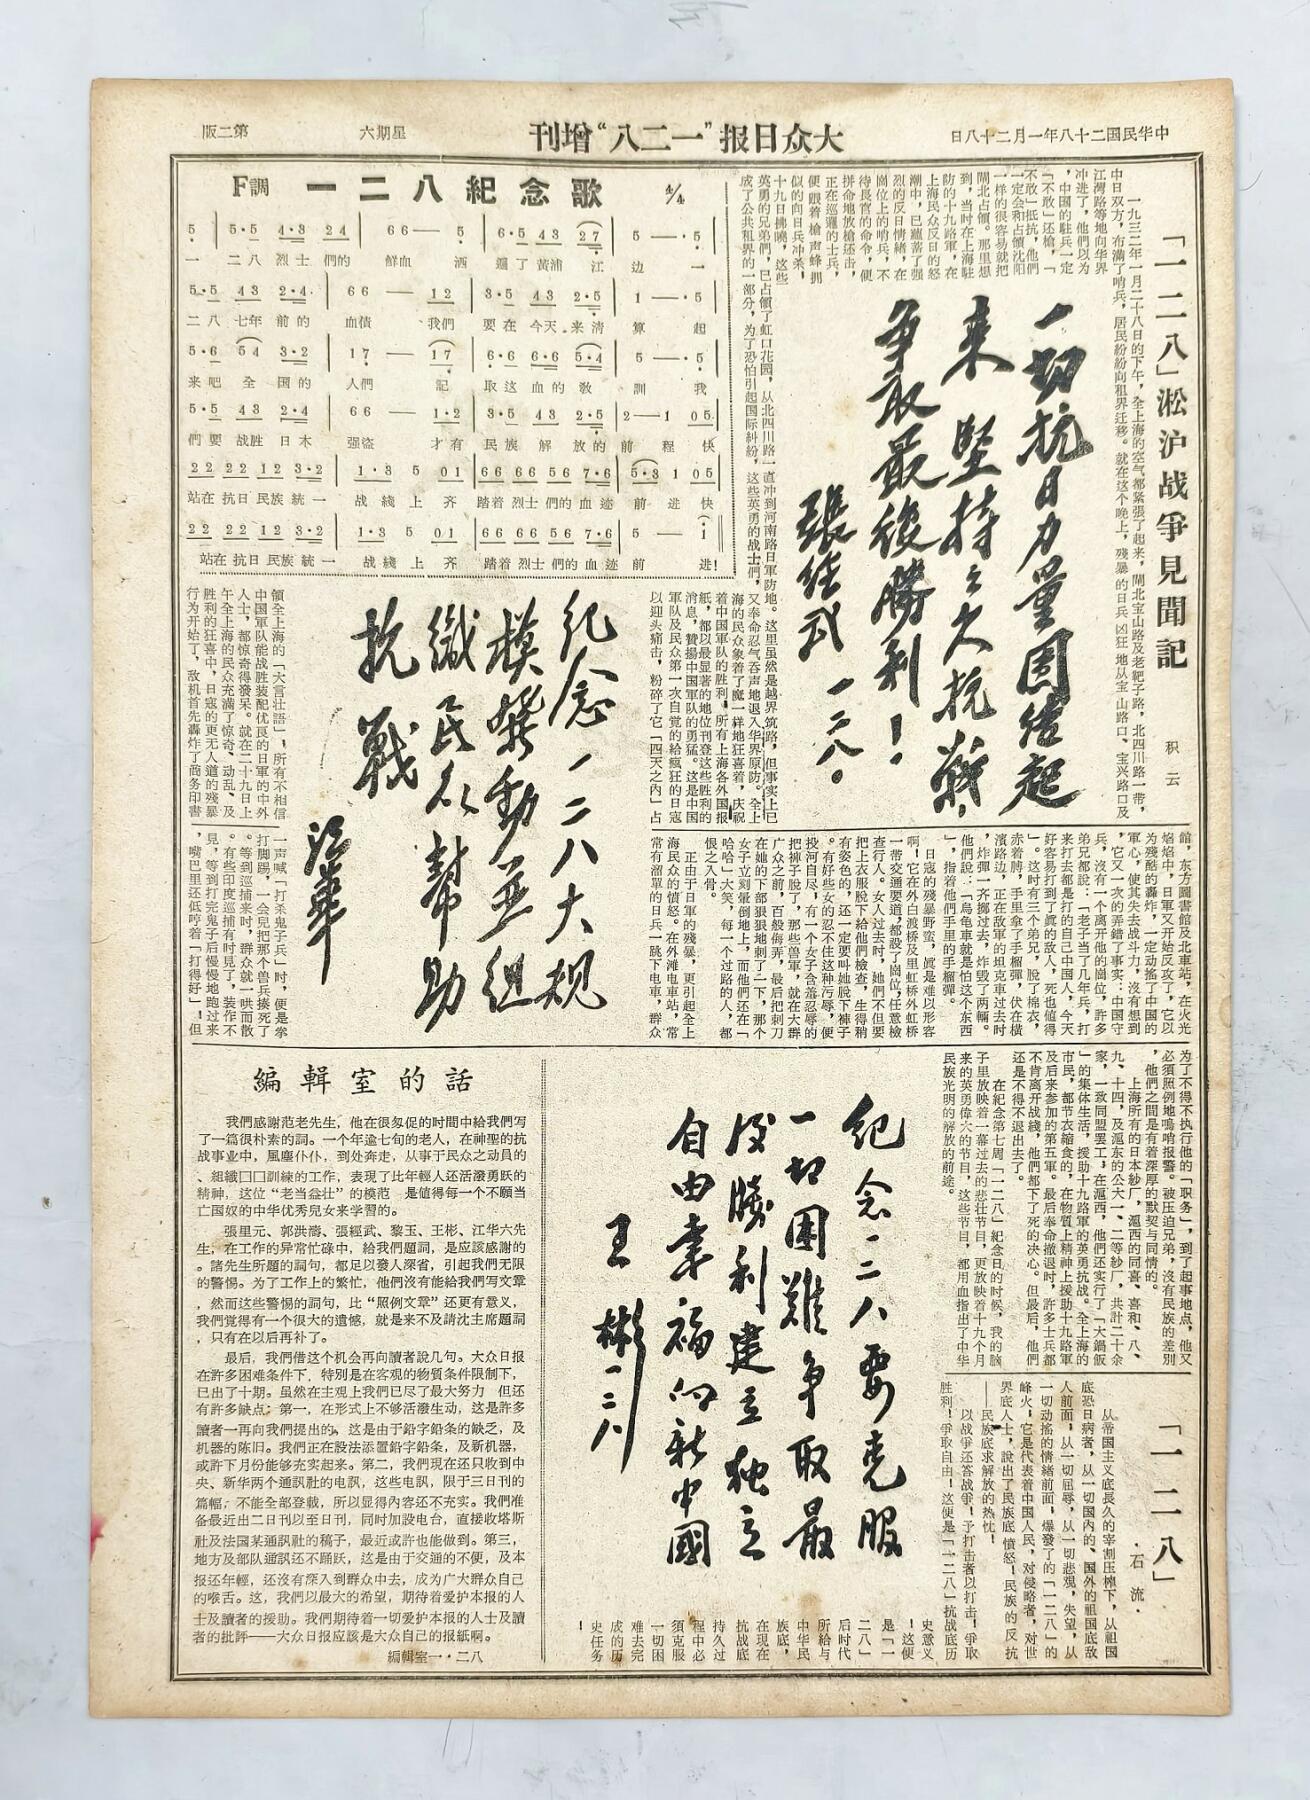 中华民国二十八年一月二十八日
大众日报“一二八”增刊
星期六
第二版
「一二八」淞沪战爭見聞記
积云
一九三二年一月二十八日的下午，全上海的空气都緊張了起来，閘北宝山路及老靶子路，北四川路一带，
中日双方，布滿了哨兵，居民紛紛向租界迁移。就在这个晚上，殘暴的日兵 凶狂 地从宝山路口、宝兴路口及
江灣路等地向华界
冲进了，他們以为
，中国的駐兵一定
「不敢」还槍，「
不敢」抵抗，他們
一定会和占領沈阳
一样的很容易就把
閘北占領。那里想
到，当时在上海駐
防的十九路軍，在
上海民众反日的怒
潮中，已蘊蓄了强
烈的反日情緒，在
崗位上的哨兵，不
待長官的命令，便
拼命地放槍还击，
正在巡邏的士兵，
便跟着槍声蜂拥
似的向日兵冲杀，
十九日拂曉，这些
英勇的兄弟們，已占領了虹口花园，从北四川路一直冲到河南路日軍防地。这里虽然是越界筑路，但事实上已
成了公共租界的一部分，为了恐怕引起国际糾紛，这些英勇的战士們，又奉命忍气吞声地退入华界原防。全上
海的民众象着了魔一样地狂喜着，庆祝
着中国軍队的胜利！所有上海各外国报
紙，都以最显著的地位刊登这些胜利的
消息，贊揚中国軍队的勇猛。这是中国
軍队及民众第一次自觉的給瘋狂的日寇
以迎头痛击，粉碎了它「四天之內」占
領全上海的「大言壮語」！所有不相信
中国軍队能战胜装配优良的日軍的中外
人士，都惊奇得發呆。就在二十九日上
午全上海的民众充滿了惊奇、动乱、及
胜利的狂喜中，日寇的更无人道的殘暴
行为开始了，敌机首先轟炸了商务印書
館，东方圖書館及北車站，在火光
焰焰中，日軍又开始反攻了，它以
为殘酷的轟炸，一定动搖了中国的
軍心，使其失去战斗力，沒有想到
，它又一次的弄錯了事实：中国守
兵，沒有一个离开他的崗位，許多
弟兄都說：「老子当了几年兵，打
来打去都是打的自己中国人，今天
好容易打到了真的敌人，死也値得
」。这时有三个弟兄，脫了棉衣，
赤着膊，手里拿了手榴彈，伏在橫
濱路边，正在敌軍的坦克車过去时
，炸彈一齐擲过去，炸毀了两輛。
他們說：「烏龟車就是怕这个东西
」，指着他們手里的手榴彈。
日寇的殘暴野蛮，眞是难以形容
啊！它在外白渡桥及里虹桥外虹桥
一带交通要道，都設了崗位，任意檢
查行人。女人过去时，她們不但要
把上衣服脫下給他們檢查，生得稍
有姿色的，还一定要叫她脫下褲子
。有好些女的忍不住这种污辱，便
投河自尽，有一个女子含羞忍辱的
把褲子脫了，那些兽軍，就在大群
广众之前，百般侮弄，最后把刺刀
在她的下部狠狠地刺了一下，那个
女子立刻暈倒地上，而他們还在「
哈哈」大笑，每一个过路的人，都
恨之入骨。
正由于日軍的殘暴，更引起全上
海民众的憤怒。在外滩电車站，常
常有溜單的日兵一跳下电車，群众
一声喊「打杀鬼子兵」时，便是拳
打脚踢，一会兒把那个兽兵揍死了
。等到巡捕来时，群众就一哄而散
。有些印度巡捕有时見了，装作不
見，等到打完鬼子后慢慢地跑过来
，嘴巴里还低哼着「打得好」！但
为了不得不执行他的「职务」，到了起事地点，他又
必須照例地鳴哨报警。被压迫兄弟，沒有民族的差別
，他們之間是有着深厚的默契与同情的。
上海所有的日本紗厂，滬西的同喜、喜和、八、
九、十四，及滬东的公大一、二等紗厂，共計二十余
家，一致同盟罢工，在滬西，他們还实行了「大鍋飯
」的集体生活，援助十九路軍的英勇抗战。全上海的
市民，都节衣縮食的，在物質上精神上援助十九路軍
及后来參加的第五軍。最后奉命撤退时，許多士兵都
不肯离开战綫，他們都下了死的决心。但最后，他們
还是不得不退出去了。
在紀念第七周「一二八」紀念日的时候，我的脑
子里放映着一幕过去的悲壮节目，更放映着十九个月
来的英勇偉大的节目，这些节目，都用血指出了中华
民族光明的解放的前途。
一切抗日力量團結起
来 堅持之久抗戰，
爭取最後勝利！
張経武 一二八。
F調 一二八紀念歌 4/4
一 二八 烈士 們的 鮮血 洒 遍了 黃浦 江 边 一
二八 七年 前的 血債 我們 要在 今天 来清 算 起
来吧 全 国的 人們 記 取这 血的 教 訓 我
們要 战胜 日本 强盗 才有 民族 解 放的 前 程 快
站在 抗日 民族 統一 战綫 上 齐 踏着 烈士 們的 血迹 前 进 快
站在 抗日 民族 統一 战綫 上 齐 踏着 烈士 們的 血迹 前 进！
紀念一二八大規
模發動並組
織民众幫助
抗戰
江華
紀念一二八要克服
一切困難爭取最
後勝利建立独立
自由幸福的新中國
王彬 一二八
「一二八」
·石流·
从帝国主义底長久的宰割压榨下，从祖国
底恐日病者，从一切国內的、国外的祖国底敌
人前面，从一切屈辱，从一切悲观，失望，从
一切动搖的情緒前面，爆發了的「一二八」的
烽火！它是代表着中国人民，对侵略者，对世
界底人士，說出了民族底 憤怒！民族 的反抗
——民族底求解放的热忱！
以战爭还答战爭！予打击者以打击！爭取
胜利！爭取自由！这便是「一二八」抗战底历
史意义
！这便
是「一
二八」
后时代
所給与
中华民
族底，
在現在
抗战底
持久过
程中必
須克服
一切困
难去完
成的历
史任务
！
編輯室的話
我們感謝范老先生，他在很匆促的时間中給我們写
了一篇很朴素的詞。一个年逾七旬的老人，在神聖的抗
战事业中，風塵仆仆，到处奔走，从事于民众之动員的
、組織囗囗訓練的工作，表現了比年輕人还活潑勇躍的
精神，这位“老当益壮”的模范 是値得每一个不願当
亡国奴的中华优秀兒女来学習的。
張里元、郭洪濤、張經武、黎玉、王彬、江华六先
生，在工作的异常忙碌中，給我們題詞，是应該感謝的
。諸先生所題的詞句，都足以發人深省，引起我們无限
的警惕。为了工作上的繁忙，他們沒有能給我們写文章
，然而这些警惕的詞句，比“照例文章”还更有意义，
我們覺得有一个很大的遺憾，就是来不及請沈主席題詞
，只有在以后再补了。
最后，我們借这个机会再向讀者說几句。大众日报
在許多困难条件下，特別是在客观的物質条件限制下，
已出了十期。虽然在主观上我們已尽了最大努力 但还
有許多缺点：第一，在形式上不够活潑生动，这是許多
讀者一再向我們提出的，这是由于鉛字鉛条的缺乏，及
机器的陈旧。我們正在設法添置鉛字鉛条，及新机器，
或許下月份能够充实起来。第二，我們現在还只收到中
央、新华两个通訊社的电訊，这些电訊，限于三日刊的
篇幅，不能全部登載，所以显得內容还不充实。我們准
备最近出二日刊以至日刊，同时加設电台，直接收塔斯
社及法国某通訊社的稿子，最近或許也能做到。第三，
地方及部队通訊还不踊跃，这是由于交通的不便，及本
报还年輕，还沒有深入到群众中去，成为广大群众自己
的喉舌。这，我們以最大的希望，期待着爱护本报的人
士及讀者的援助。我們期待着一切爱护本报的人士及讀
者的批評——大众日报应該是大众自己的报紙啊。
編輯室一·二八